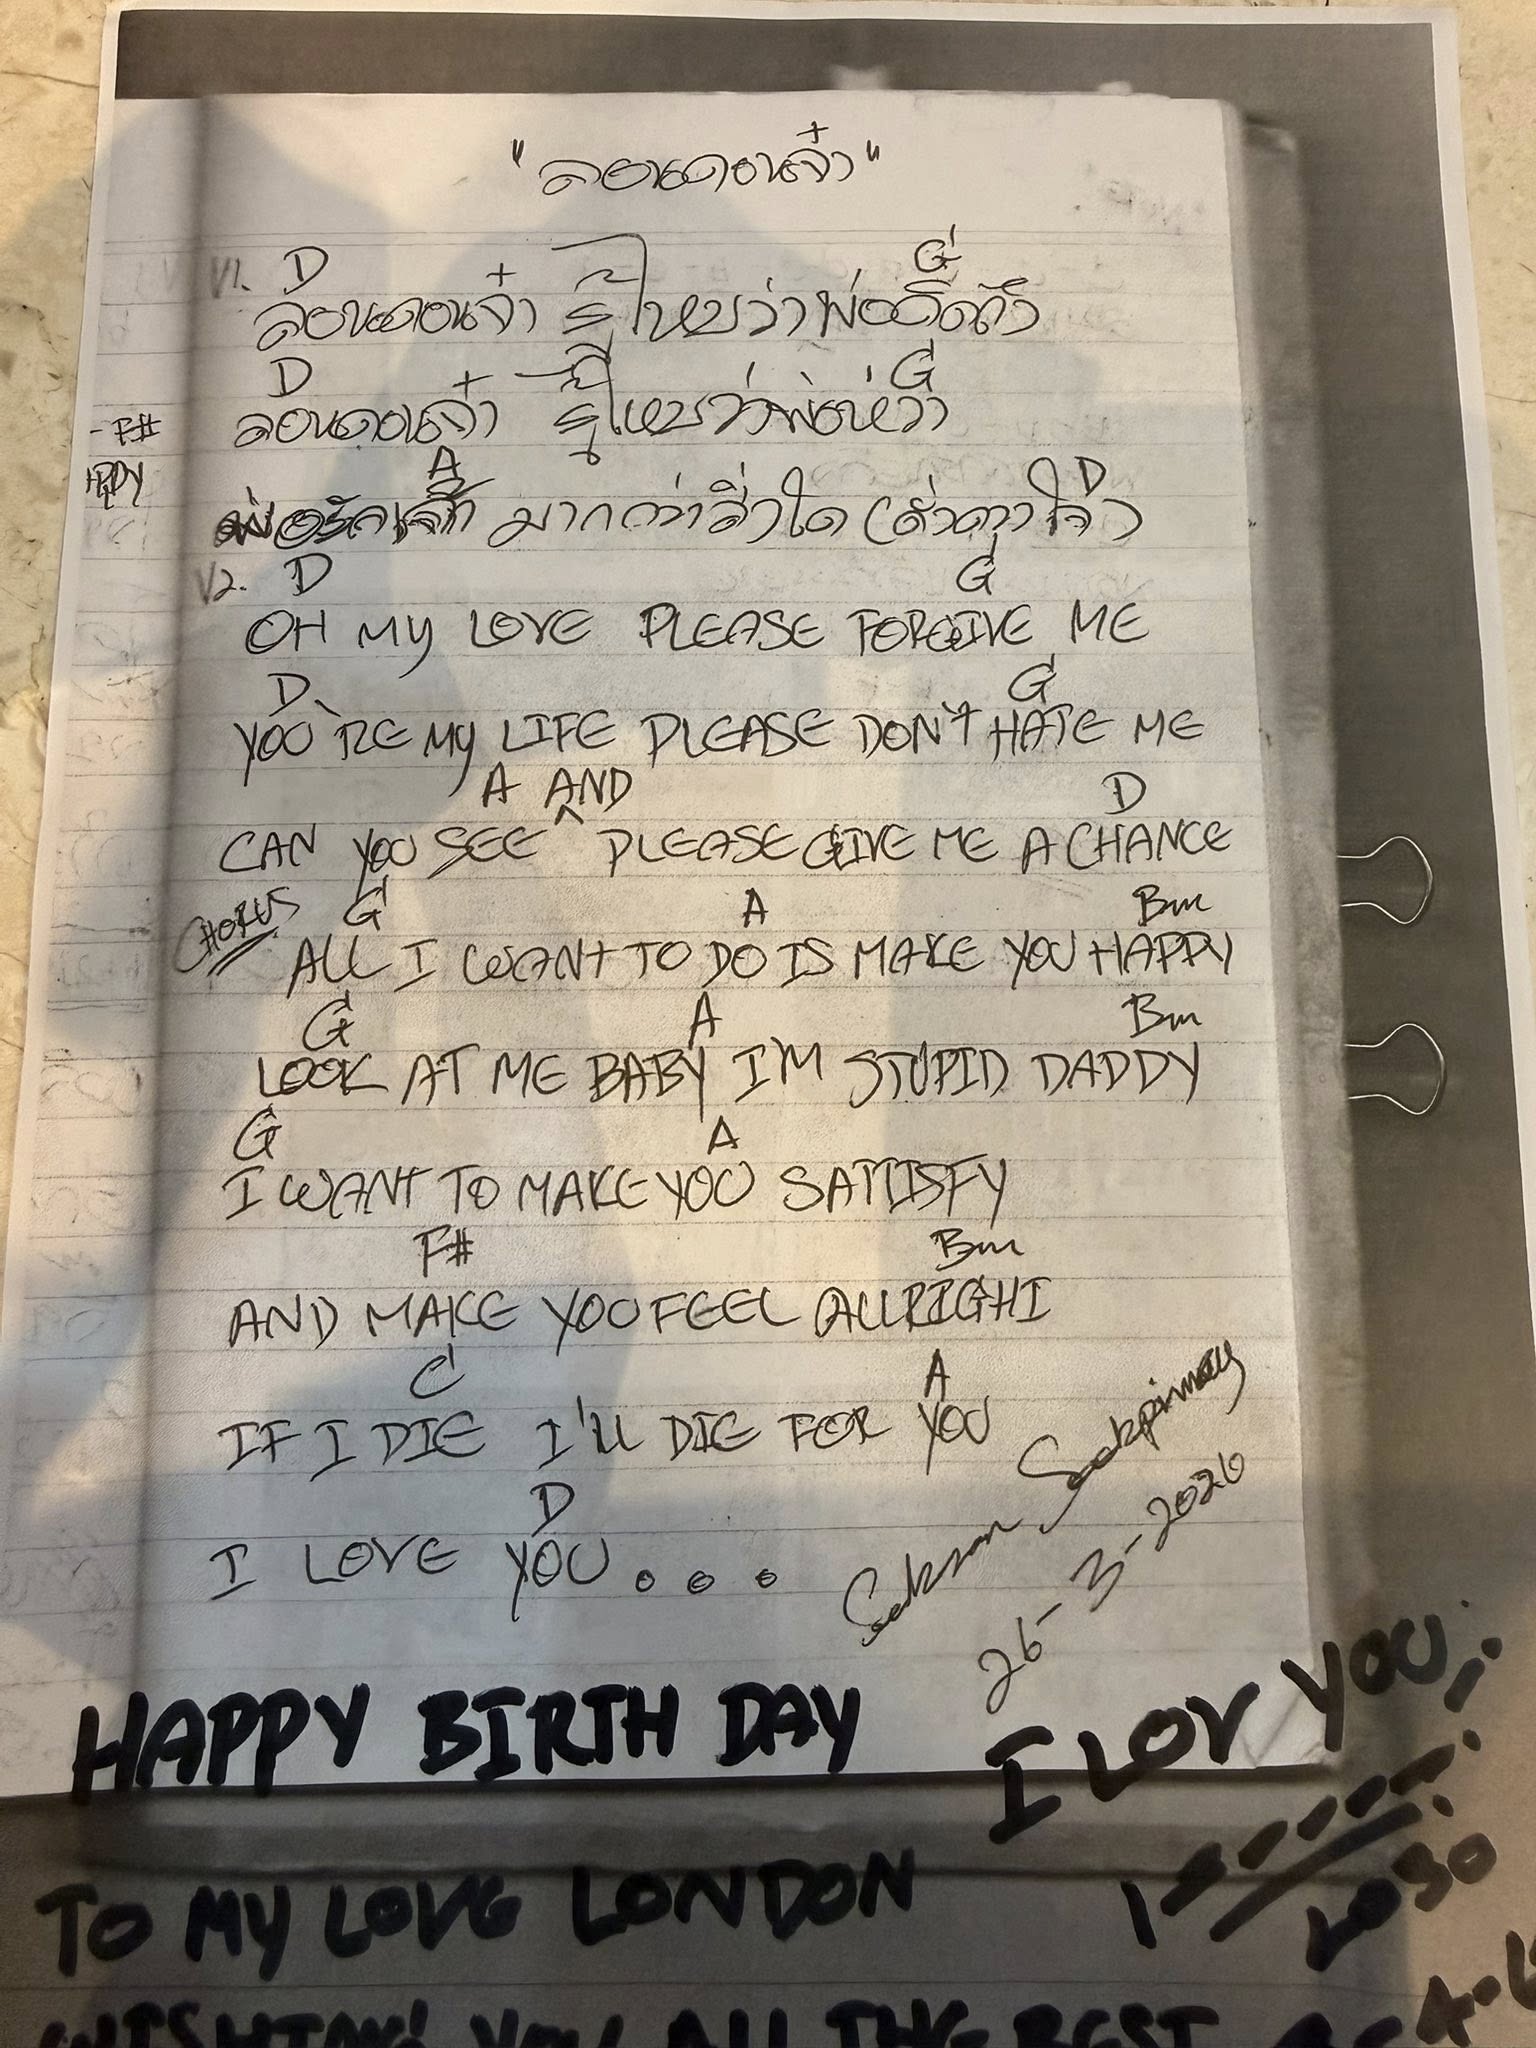 "ลอนดอนจ๋า"
V1. D G
ลอนดอนจ๋า รู้ไหมว่าพ่อคิดถึง
D G
ลอนดอนจ๋า รู้ไหมว่าพ่อห่วง
- F#
A D
พ่อรักเจ้า มากกว่าสิ่งใด
V2. D G
OH MY LOVE PLEASE FORGIVE ME
D G
YOU'RE MY LIFE PLEASE DON'T HATE ME
A AND D
CAN YOU SEE ^ PLEASE GIVE ME A CHANCE
CHORUS G A Bm
ALL I WANT TO DO IS MAKE YOU HAPPY
G A Bm
LOOK AT ME BABY I'M STUPID DADDY
G A
I WANT TO MAKE YOU SATTISFY
F# Bm
AND MAKE YOU FEEL ALLRIGHT
C A
IF I DIE I'LL DIE FOR YOU
D
I LOVE YOU...
Seksan Sookpimay
26-3-2026
HAPPY BIRTH DAY
I LOV YOU
TO MY LOVE LONDON
WISHING YOU ALL THE BEST